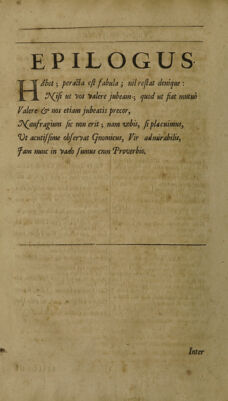 EPILOGUS
Habet; peracta est fabula; nil restat denique:
Nisi ut vos valere jubeam; quod ut fiat mutuò
Valere & nos etiam jubeatis precor,
Naufragium sic non erit; nam vobis, si placuimus,
Ut acutissime observat Gnomicus, Vir admirabilis,
Jam nunc in vado sumus cum Proverbio.
Inter